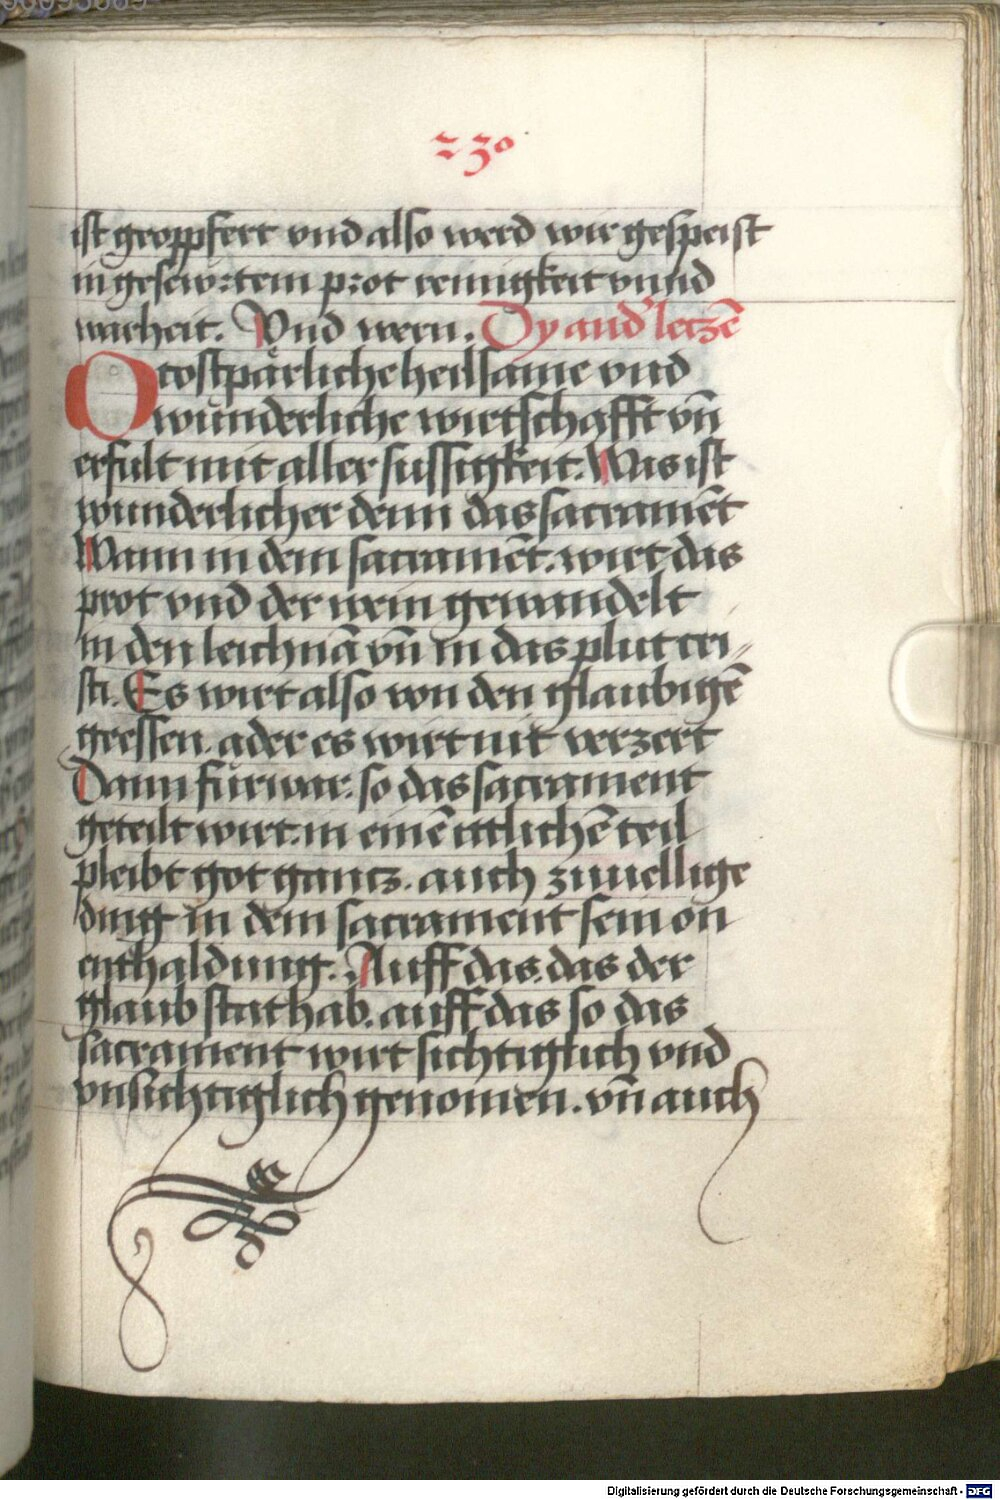 230
ist geoppfert vnd also werd wir gespeist
in gesewrtem prot reinigkeit vnnd
warheit. Vnd wern. Dy and' letzē
O costpärliche heilsame vnd
wunderliche wirtschafft vn̄
erfult mit aller sussigkeit. Was ist
wunderlicher denn das sacramēt
Wann in dem sacramēt. wirt das
prot vnd der wein gewandelt
in den leichnā vn̄ in das plut cri⸗
sti. Es wirt also von den glaubigē
geessen. ader es wirt nit verzert
Dann fürwar. so das sacrament
geteilt wirt. in einē ittlichē teil
pleibt got gantz. auch zuuellige
ding in dem sacrament sein on
enthaldung. Auff das. das der
glaub stat hab. auff das so das
sacrament wirt sichtiglich vnd
vnsichtiglich genomen. vn̄ auch
Digitalisierung gefördert durch die Deutsche Forschungsgemeinschaft - DFG